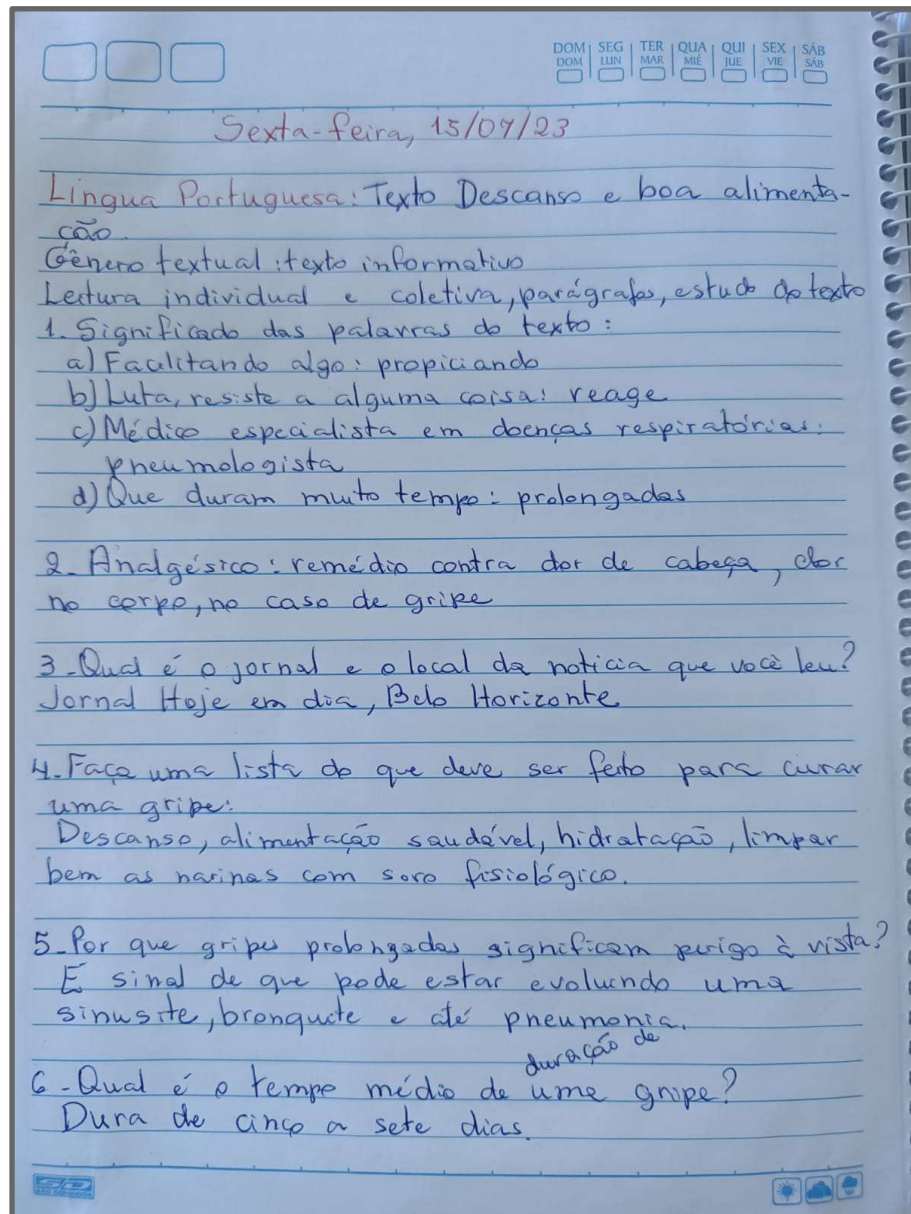 DOM SEG TER QUA QUI SEX SÁB
DOM LUN MAR MIÉ JUE VIE SÁB
Sexta-feira, 15/09/23
Língua Portuguesa: Texto Descanso e boa alimenta-
ção.
Gênero textual: texto informativo
Leitura individual e coletiva, parágrafos, estudo do texto
1. Significado das palavras do texto:
a) Facilitando algo: propiciando
b) Luta, resiste a alguma coisa: reage
c) Médico especialista em doenças respiratórias:
pneumologista
d) Que duram muito tempo: prolongadas
2. Analgésico: remédio contra dor de cabeça, dor
no corpo, no caso de gripe
3. Qual é o jornal e o local da notícia que você leu?
Jornal Hoje em dia, Belo Horizonte
4. Faça uma lista do que deve ser feito para curar
uma gripe:
Descanso, alimentação saudável, hidratação, limpar
bem as narinas com soro fisiológico.
5. Por que gripes prolongadas significam perigo à vista?
É sinal de que pode estar evoluindo uma
sinusite, bronquite e até pneumonia.
duração de
6. Qual é o tempo médio de uma gripe?
Dura de cinco a sete dias.